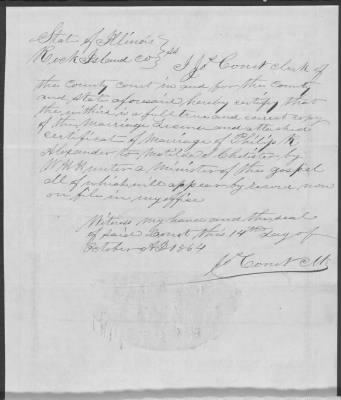 State of Illinois
Rock Island Co } ss I Jos Conet clerk of
the County court in and for the county
and State aforesaid hereby certify that
the within is a full true and correct copy
of the Marriage License and attached
certificate of Marriage of Philip R.
Alexander to Matilda Chelister by
W H Hunter a Minister of the gospel
all of which will appear by now
on file in my office
Witness my hand and the seal
of said Court this 14th day of
October AD 1864
Jos Conet Clk